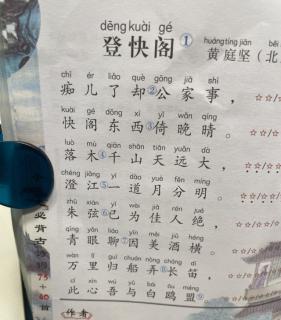 dēng kuài gé
登快阁①
huáng tíng jiān běi
黄庭坚（北
chī ér liǎo què gōng jiā shì
痴儿了却②公家事，☆☆/☆
kuài gé dōng xī yǐ wǎn qíng
快阁东西③倚晚晴。☆☆/☆
luò mù qiān shān tiān yuǎn dà
落木④千山天远大，☆☆/☆
chéng jiāng yí dào yuè fēn míng
澄江⑤一道月分明。☆☆/☆
zhū xián yǐ wèi jiā rén jué
朱弦⑥已为佳人绝，
qīng yǎn liáo yīn měi jiǔ hèng
青眼聊⑦因美酒横。
wàn lǐ guī chuán nòng cháng dí
万里归船弄⑧长笛，
cǐ xīn wú yǔ bái ōu méng
此心吾与白鸥盟⑨。
作者
必背古
75
+